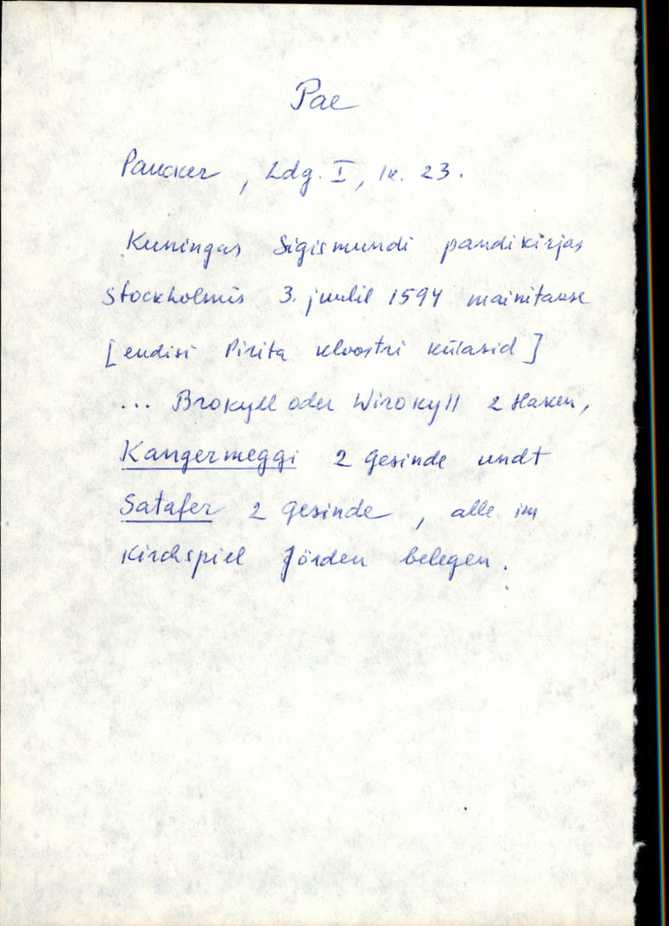 Pae
Paucker, Ldg. I, lk. 23.
Kuningas Sigismundi pandikirjas
Stockholmis 3. juulil 1594 mainitakse
[endisi Pirita kloostri külasid]
... Brokyll oder Wirokyll 2 Haken,
Kangermeggi 2 Gesinde undt
Satafer 2 Gesinde, alle im
Kirchspiel Jörden belegen.